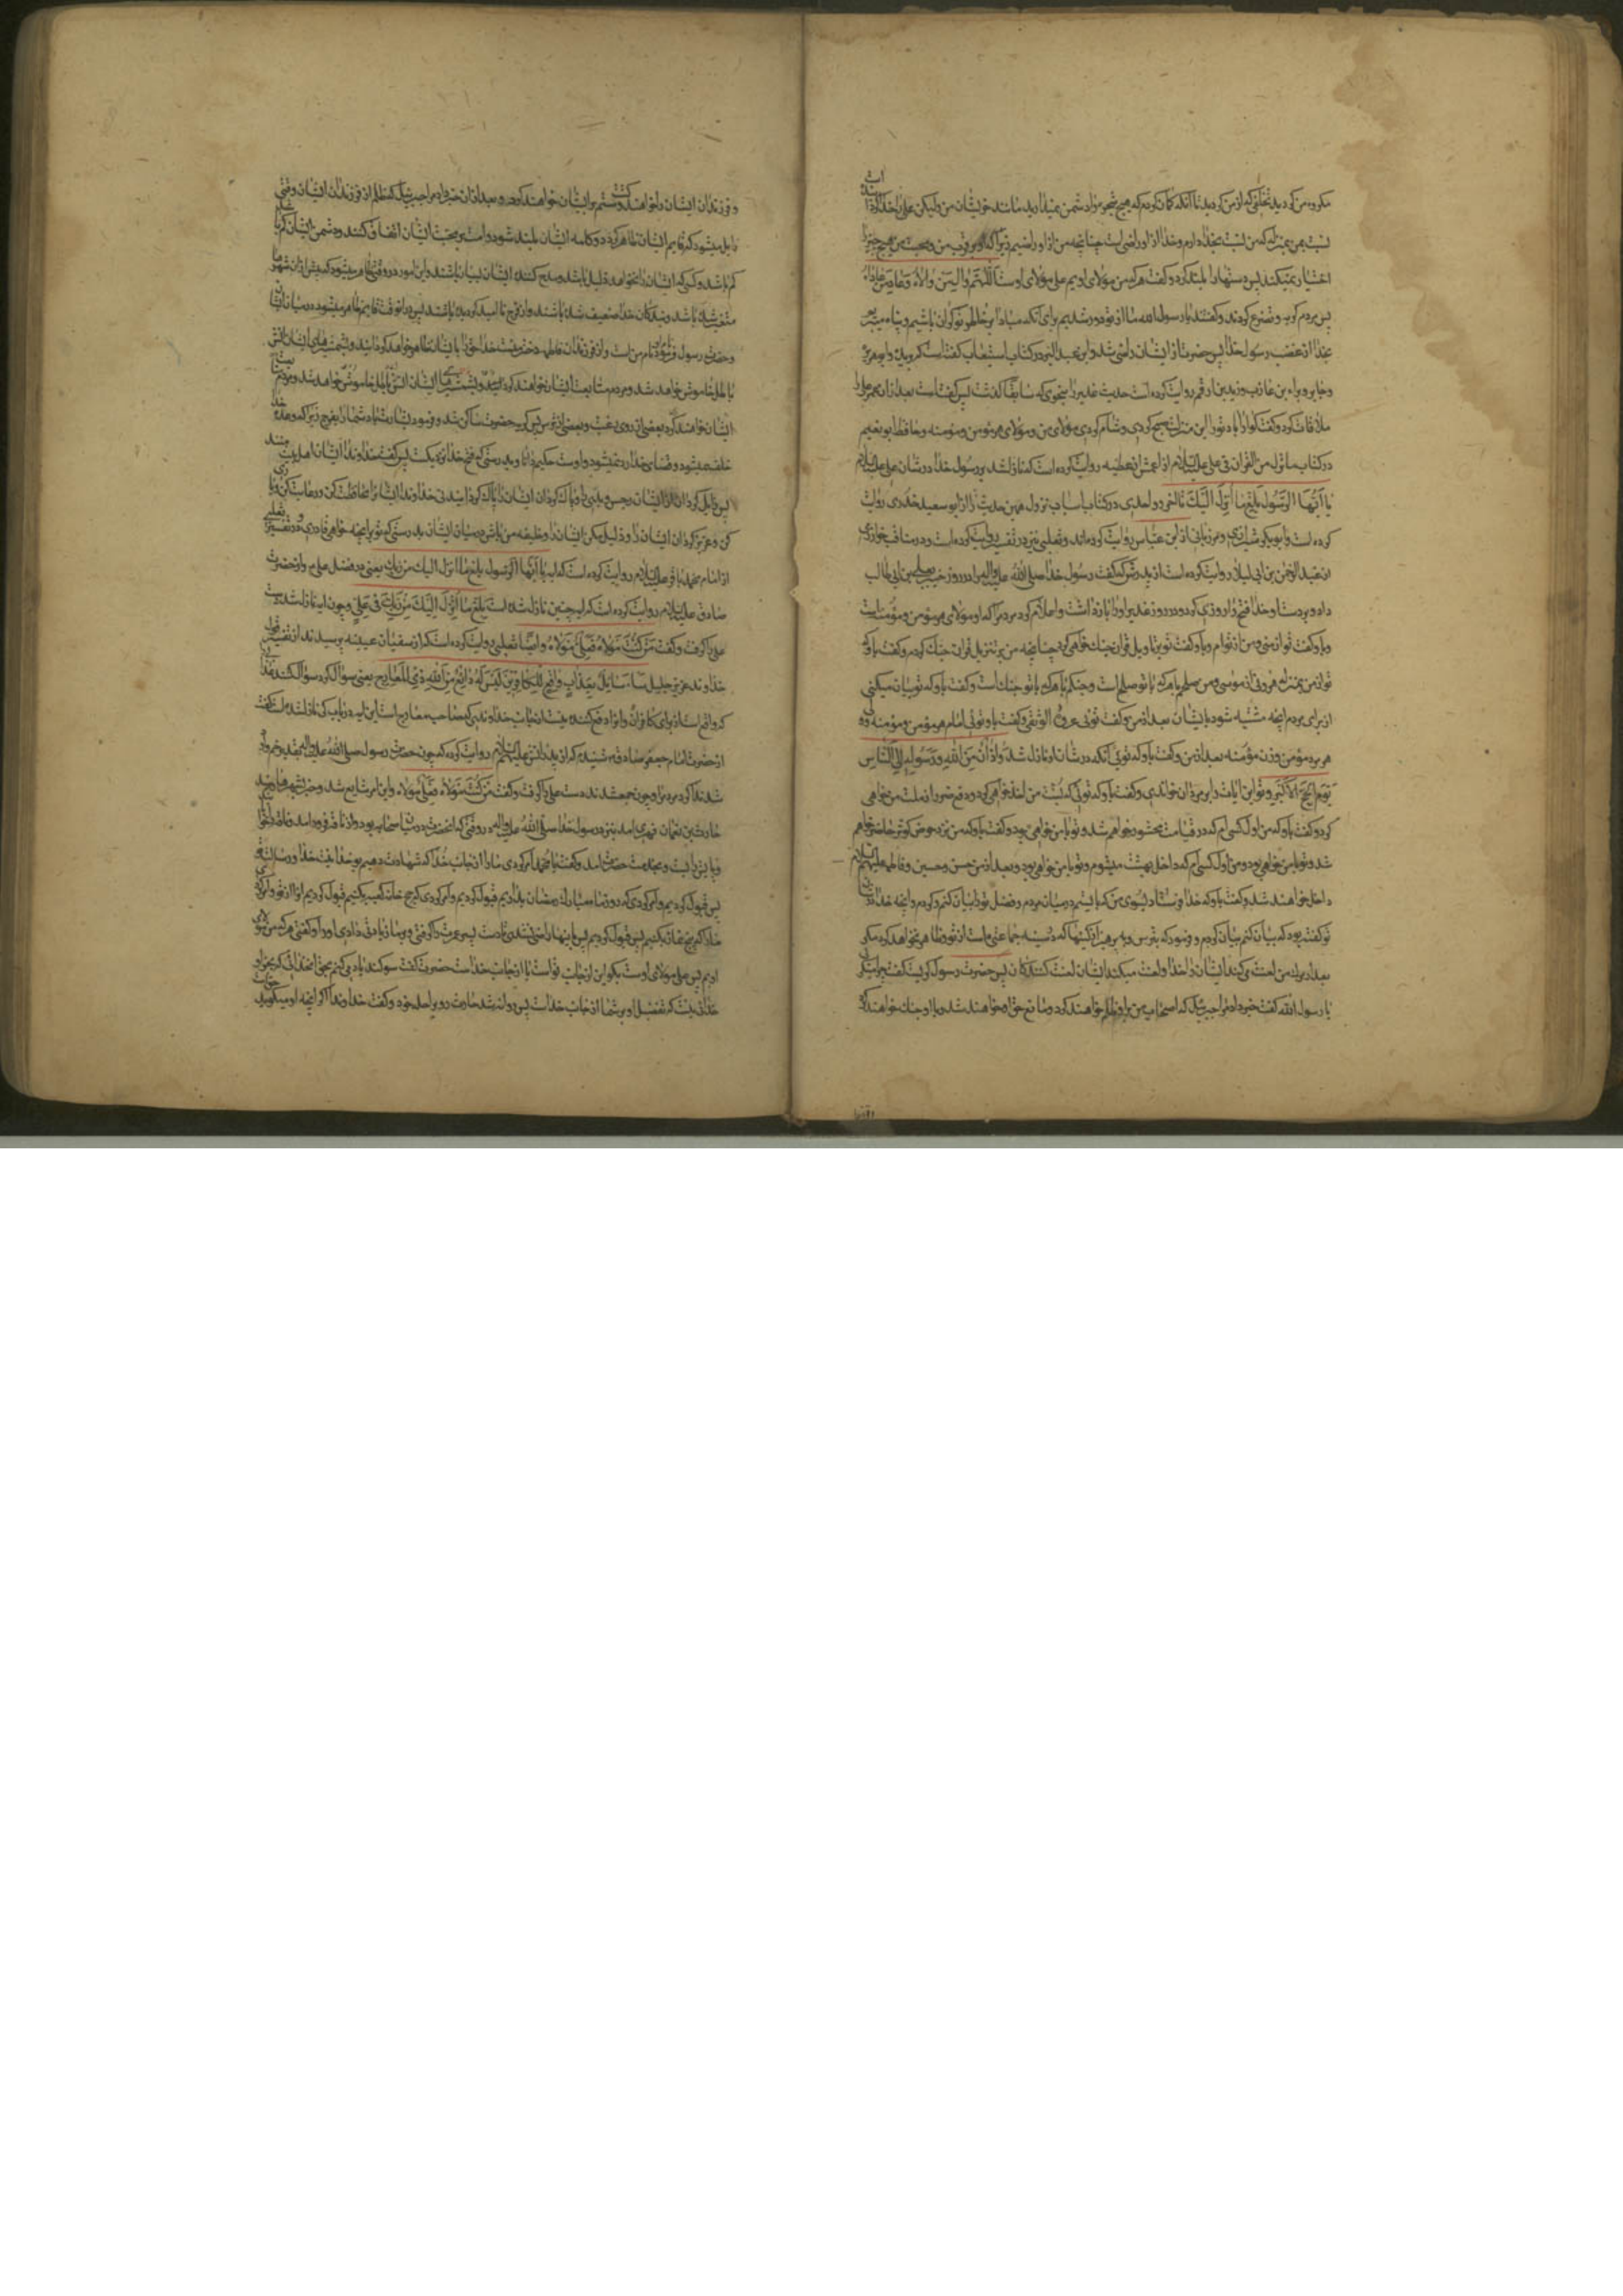 مکروه من کردید تخلفی که از من کردید تا آنکه گمان کردم که هیچ شجر نزد شما دشمن نمیدارید مانند خویشان من ولیکن علی را خدا
نسبت بمن بمنزله که من نسبت بخدا دارم و خدا از او راضی است چنانچه من از او راضیم زیرا که او بر قرب من و محبت من هیچ چیز را
اختیار نمیکند پس دستها را بلند کرد و گفت هر که من مولای اویم علی مولای اوست اللهم وال من والاه و عاد من عاداه
پس مردم گریه و تضرع کردند و گفتند یا رسول الله ما از تو دور شدیم برای آنکه مبادا بر خاطر تو گران باشیم و پناه میبریم
بخدا از غضب رسول خدا پس حضرت از ایشان راضی شد و ابن عبد البر در کتاب استیعاب گفته است که بریده و ابو هریره
و جابر و براء بن عازب و زید بن ارقم روایت کرده است حدیث غدیر را بنحوی که سابقا گذشت پس گفته است بعد از آن عمر علی را
ملاقات کرد و گفت گوارا باد ترا ای پسر ابیطالب صبح کردی و شام کردی مولای من و مولای هر مؤمن و مؤمنه و حافظ ابو نعیم
در کتاب ما نزل من القرآن فی علی علیه السلام از اعمش از عطیه روایت کرده است که نازلشد بر رسول خدا در شان علی علیه السلام
یا ایها الرسول بلغ ما انزل الیک تا آخر و واحدی در کتاب اسباب نزول همین حدیث را از ابو سعید خدری روایت
کرده است و ابو بکر شیرازی و مرزبانی از ابن عباس روایت کرده‌اند و ثعلبی نیز در تفسیر روایت کرده است و در مناقب خوارزمی
از عبد الرحمن بن ابی لیلا روایت کرده است از پدرش که گفت رسول خدا صلی الله علیه وآله در روز خیبر علم بعلی بن ابی طالب
داد و بر دست او خدا فتح را روزی کرد و در روز غدیر او را باز داشت و اعلام کرد مردم را که او مولای هر مؤمن و مؤمنه است
و باو گفت تو از منی و من از توام و باو گفت تو بر تاویل قرآن جنگ خواهی کرد چنانچه من بر تنزیل قرآن جنگ کردم و گفت باو که
تو از من بمنزله هرونی از موسی و من سلمم با هر که با تو سلم است و جنگم با هر که با تو جنگ است و گفت باو که تو بیان میکنی
از برای مردم آنچه مشتبه شود بایشان بعد از من و گفت توئی عروة الوثقی و گفت باو توئی امام هر مؤمن و مؤمنه و ولی
هر مرد مؤمن و زن مؤمنه بعد از من و گفت باو که توئی آنکه در شان او نازل شد و اذان من الله و رسوله الی الناس
یوم الحج الاکبر و تو این آیات را بر مردان خواندی و گفت باو که توئی که بسنت من اخذ خواهی کرد و دفع ضرر از ملت من خواهی
کرد و گفت باو که من اول کسی‌ام که در قیامت محشور خواهم شد و تو با من خواهی بود و گفت باو که من نزد حوض کوثر حاضر خواهم
شد و تو با من خواهی بود و من اول کسی‌ام که داخل بهشت میشوم و تو با من خواهی بود و بعد از من حسن و حسین و فاطمه علیهم السلام
داخل خواهند شد و گفت باو که خدا وحی فرستاد بسوی من که بایستم در میان مردم و فضل ترا بیان کنم و کردم و آنچه خدا در شان
تو گفته بود که بیان کنم بیان کردم و فرمود که بترس و بپرهیز از کینها که در سینه جماعتی هست از تو و ظاهر نخواهد کرد مگر
بعد از مردن من لعنت میکند ایشان را خدا و لعنت میکنند ایشان را لعنت کنندگان پس حضرت رسول گریست گفتند چرا میگریی
یا رسول الله گفت خبر داد مرا جبرئیل که اصحاب من بر او ظلم خواهند کرد و مانع حق او خواهند شد و با او جنگ خواهند کرد
و فرزندان ایشان را خواهند کشت و ستم بر ایشان خواهند کرد و بعد از آن خبر داد مرا جبرئیل که ظلم از فرزندان ایشان وقتی
زایل میشود که قایم ایشان ظاهر گردد و کلمه ایشان بلند شود و امت بر محبت ایشان اتفاق کنند و دشمن ایشان کم
باشد و کسی که ایشان را نخواهد ذلیل باشد و مدح کننده ایشان بسیار باشند و این امور در وقتی ظاهر میشود که پیش از آن شهرها
متغیر شده باشد و بندگان خدا ضعیف شده باشند و از فرج نا امید گردیده باشند پس در آنوقت قایم ظاهر میشود در میان ایشان
و حضرت رسول فرمود نام او نام من است و از فرزندان فاطمه دختر منست خدا حق را بایشان ظاهر خواهد گردانید و بشمشیرهای ایشان آتش
باطل خاموش خواهد شد و مردم متابعت ایشان خواهند کرد
ایشان خواهند کرد بعضی از روی رغبت و بعضی از ترس پس گریه حضرت ساکن شد و فرمود بشارت باد شما را بفرج زیرا که وعده خدا
خلف نمیشود و قضای خدا رد نمیشود و اوست حکیم دانا و بدرستی که فتح خدا نزدیکست پس گفت خداوندا ایشان اهل بیت منند
پس زایل گردان از ایشان رجس و بدی را و پاک گردان ایشان را پاک گردانیدنی خداوندا ایشان را محافظت کن و رعایت کن و یاری
کن و عزیز گردان ایشان را و ذلیل مکن ایشان را و خلیفه من باش در میان ایشان بدرستی که تو بر آنچه خواهی قادری و در تفسیر ثعلبی
از امام محمد باقر علیه السلام روایت کرده است که آیه یا ایها الرسول بلغ ما انزل الیک من ربک یعنی در فضل علی و از حضرت
صادق علیه السلام روایت کرده است که آیه چنین نازل شده است بلغ ما انزل الیک من ربک فی علی و چون آیه نازلشد دست
علی را گرفت و گفت من کنت مولاه فعلی مولاه و ایضا ثعلبی روایت کرده است که از سفیان عیینه پرسیدند از تفسیر قول
خداوند عزیز جلیل سأل سایل بعذاب واقع للکافرین لیس له دافع من الله ذی المعارج یعنی سؤال کرد سؤال کننده عذابی
که واقع است از برای کافران و او را دفع کننده نیست از جانب خداوندی که صاحب معارج است این آیه در باب کی نازلشده است گفت
از حضرت امام جعفر صادق شنیدم که از پدرانش علیهم السلام روایت کرد که چون حضرت رسول صلی الله علیه وآله بغدیر خم وارد
شد ندا کرد مردم را و چون جمع شدند دست علی را گرفت و گفت من کنت مولاه فعلی مولاه و این امر شایع شد و خبر بشهرها رسید
حارث بن نعمان فهری آمد بنزد رسول خدا صلی الله علیه وآله در وقتی که آنحضرت در میان اصحاب بود و از ناقه فرود آمد و ناقه را خوابانید
و پایش را بست و بخدمت حضرت آمد و گفت یا محمد امر کردی ما را از جانب خدا که شهادت دهیم بوحدانیت خدا و رسالت تو
پس قبول کردیم و امر کردی که روزه ماه مبارک رمضان بداریم قبول کردیم و امر کردی که حج خانه کعبه بکنیم قبول کردیم از تو و امر کردی
پس قبول کردیم پس باینها راضی نشدی تا دست پسر عمت را گرفتی و بر ما زیادتی دادی او را و گفتی هر که من مولای
اویم پس علی مولای اوست بگو این از جانب تو است یا از جانب خداست حضرت گفت سوگند یاد میکنم بحق آنخدائی که بجز او
خدائی نیست که تفضیل او بر شما از جانب خداست پس روانه شد حارث رو براحله خود و گفت خداوندا اگر آنچه او میگوید